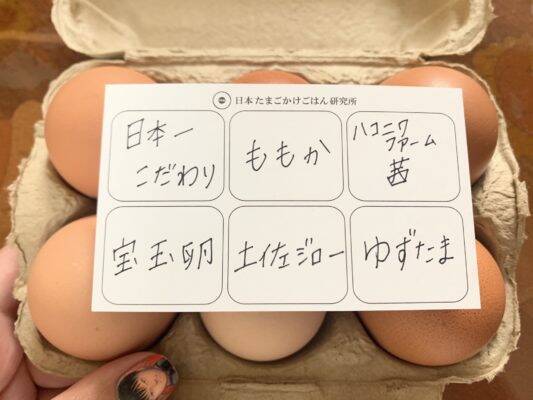 日本たまごかけごはん研究所
日本一
こだわり
ももか
ハコニワ
ファーム
茜
宝玉卵
土佐ジロー
ゆずたま